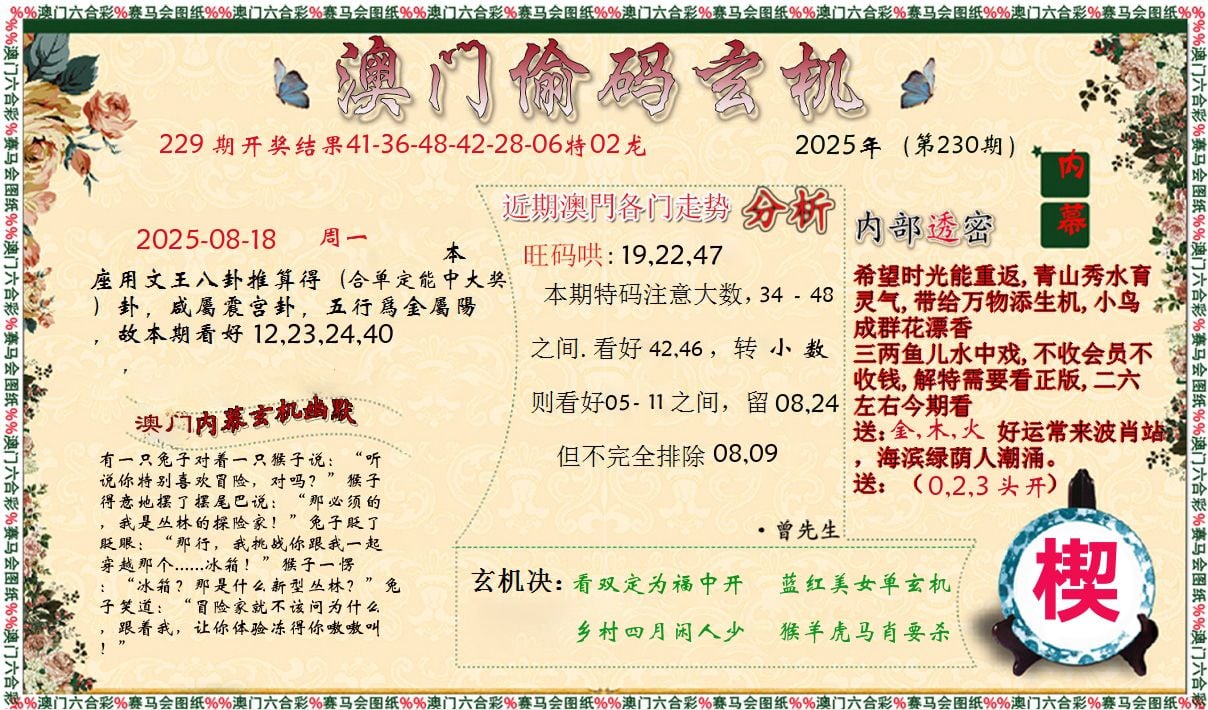 %%澳门六合彩%赛马会图纸%%澳门六合彩%赛马会图纸%%澳门六合彩%赛马会图纸%%澳门六合彩%赛马会图纸%%澳门六合彩%赛马会图纸%%澳门六合彩%赛马会图纸%%
澳门偷码玄机
229 期开奖结果41-36-48-42-28-06特02龙
2025年（第230期）
内幕
2025-08-18 周一
本
座用文王八卦推算得（合单定能中大奖
）卦，咸屬震宫卦，五行爲金屬陽
，故本期看好 12,23,24,40
，
澳门内幕玄机幽默
有一只兔子对着一只猴子说：“听
说你特别喜欢冒险，对吗？”猴子
得意地摆了摆尾巴说：“那必须的
，我是丛林的探险家！”兔子眨了
眨眼：“那行，我挑战你跟我一起
穿越那个……冰箱！”猴子一愣
：“冰箱？那是什么新型丛林？”兔
子笑道：“冒险家就不该问为什么
，跟着我，让你体验冻得你嗷嗷叫
！”
近期澳門各门走势 分析
旺码哄: 19,22,47
本期特码注意大数，34 - 48
之间. 看好 42,46 ，转 小 数
则看好05- 11 之间，留 08,24
但不完全排除 08,09
·曾先生
内部透密
希望时光能重返, 青山秀水育
灵气, 带给万物添生机, 小鸟
成群花漂香
三两鱼儿水中戏, 不收会员不
收钱, 解特需要看正版, 二六
左右今期看
送: 金, 木, 火 好运常来波肖站
，海滨绿荫人潮涌。
送：（0,2,3 头开）
玄机决: 看双定为福中开 蓝红美女单玄机
乡村四月闲人少 猴羊虎马肖要杀
楔
%%澳门六合彩%赛马会图纸%%澳门六合彩%赛马会图纸%%澳门六合彩%赛马会图纸%%澳门六合彩%赛马会图纸%%澳门六合彩%赛马会图纸%%澳门六合彩%赛马会图纸%%